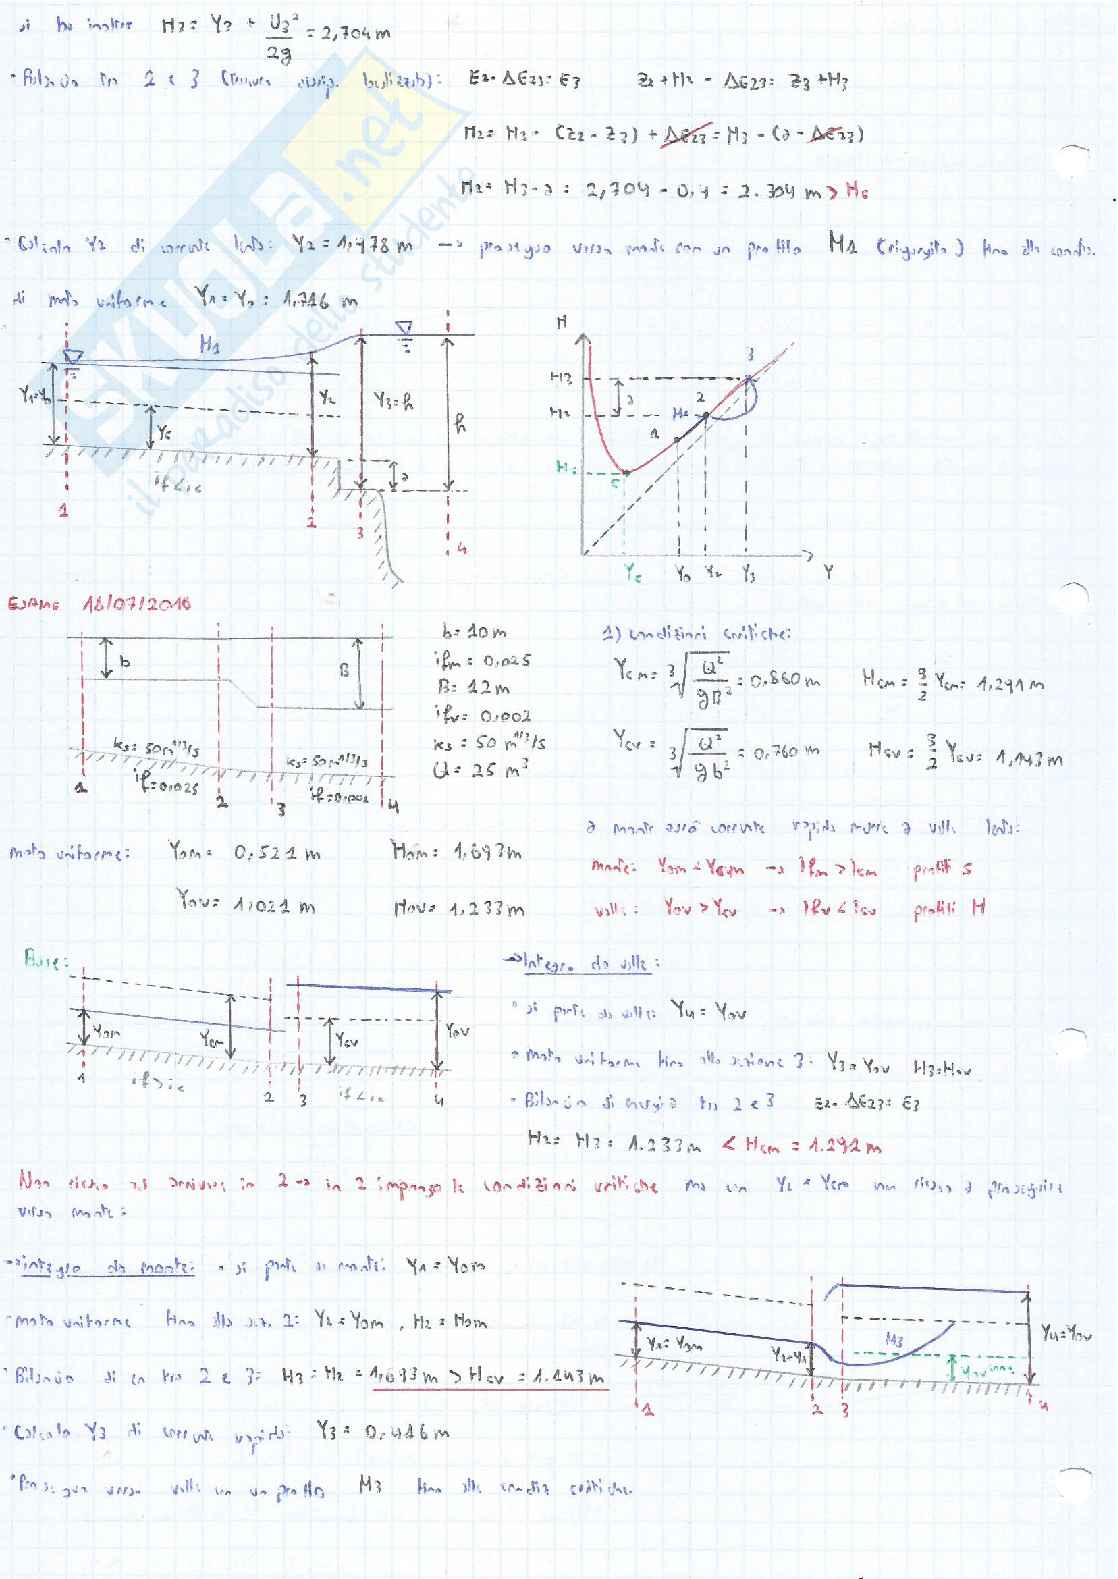 si ha inoltre H3 = Y3 + U3²/2g = 2,704 m
• Bilancio tra 2 e 3 ( dissip. localizzata): E2 - ΔE23 = E3 Z2 + H2 - ΔE23 = Z3 + H3
H2 = H3 - (Z2 - Z3) + ΔE23 = H3 - (a - ΔE23)
H2 = H3 - a = 2,704 - 0,4 = 2.304 m > Hc
• Calcolo Y2 di corrente lenta: Y2 = 1,478 m → proseguo verso monte con un profilo M1 (rigurgito) fino alla condiz.
di moto uniforme Y1 = Y0 = 1,716 m
M1
Y1=Y0
Yc
Y2
Y3=h
h
a
if<ic
1
2
3
4
H
H3
H2
Hc
a
1
M1
2
3
c
Yc
Y0
Y2
Y3
Y
ESAME 18/07/2016
b
B
ks = 50 m^1/3/s
ks = 50 m^1/3/s
if=0,025
if=0,002
1
2
3
4
b = 10 m
ifm = 0,025
B = 12 m
ifv = 0,002
ks = 50 m^1/3/s
Q = 25 m³
1) condizioni critiche:
Ycm = ∛(Q²/gB²) = 0,860 m Hcm = 3/2 Ycm = 1,291 m
Ycv = ∛(Q²/gb²) = 0,760 m Hcv = 3/2 Ycv = 1,143 m
a monte avrò corrente rapida mentre a valle lenta:
monte: Y0m < Ycm → ifm > icm profili S
valle: Y0v > Ycv → ifv < icv profili M
moto uniforme: Y0m = 0,521 m H0m = 1,693 m
Y0v = 1,021 m H0v = 1,233 m
Base:
Y0m
Ycm
Ycv
Y0v
if>ic
if<ic
1
2
3
4
→ Integro da valle:
• si parte da valle: Y4 = Y0v
• moto uniforme fino alla sezione 3: Y3 = Y0v H3 = H0v
• Bilancio di energia tra 2 e 3 E2 - ΔE23 = E3
H2 = H3 = 1.233 m < Hcm = 1.291 m
Non riesco ad arrivare in 2 → in 2 impongo le condizioni critiche ma con Y2 = Ycm non riesco a proseguire
verso monte:
→ integro da monte: • si parte da monte: Y1 = Y0m
• moto uniforme fino alla sez. 2: Y2 = Y0m, H2 = H0m
• Bilancio di en tra 2 e 3: H3 = H2 = 1,693 m > Hcv = 1.143 m
• Calcolo Y3 di corrente rapida: Y3 = 0,416 m
• Proseguo verso valle con un profilo M3 fino alle condiz critiche.
Y1=Y0m
Y2=Y1
M3
Y4=Y0v
1
2
3
4
SKUOLA.net
il paradiso dello studente